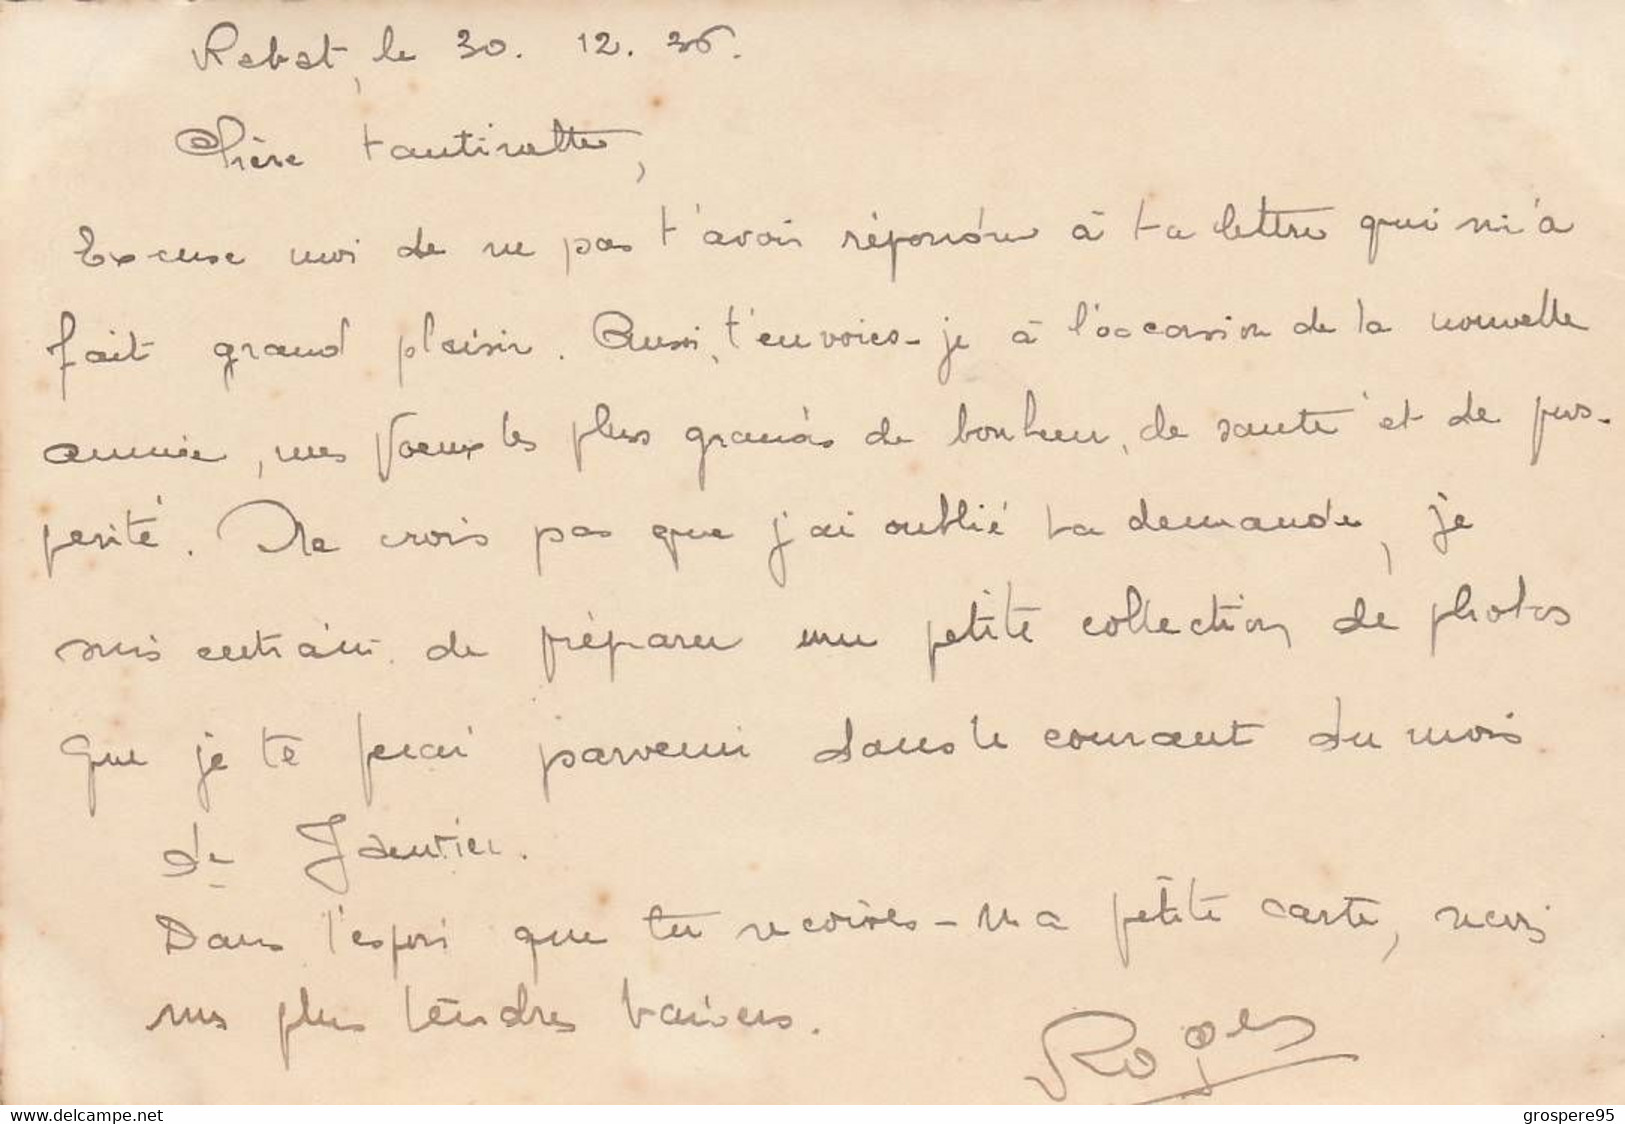 Rabat, le 30. 12. 36.
Chère tantinette,
Excuse moi de ne pas t'avoir répondu à ta lettre qui m'a
fait grand plaisir. Aussi, t'envoies-je à l'occasion de la nouvelle
année, mes Voeux les plus grands de bonheur, de santé et de pros-
périté. Ne crois pas que j'ai oublié ta demande, je
suis entrain de préparer une petite collection de photos
que je te ferai parvenir dans le courant du mois
de Janvier.
Dans l'espoir que tu recoives-ma petite carte, recois
mes plus tendres baisers.
Roger
www.delcampe.net
grospere95